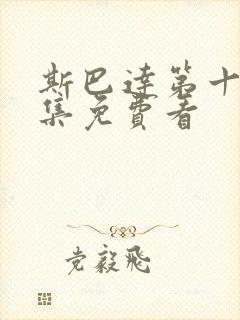 斯巴达第十
集免費看
党毅飛